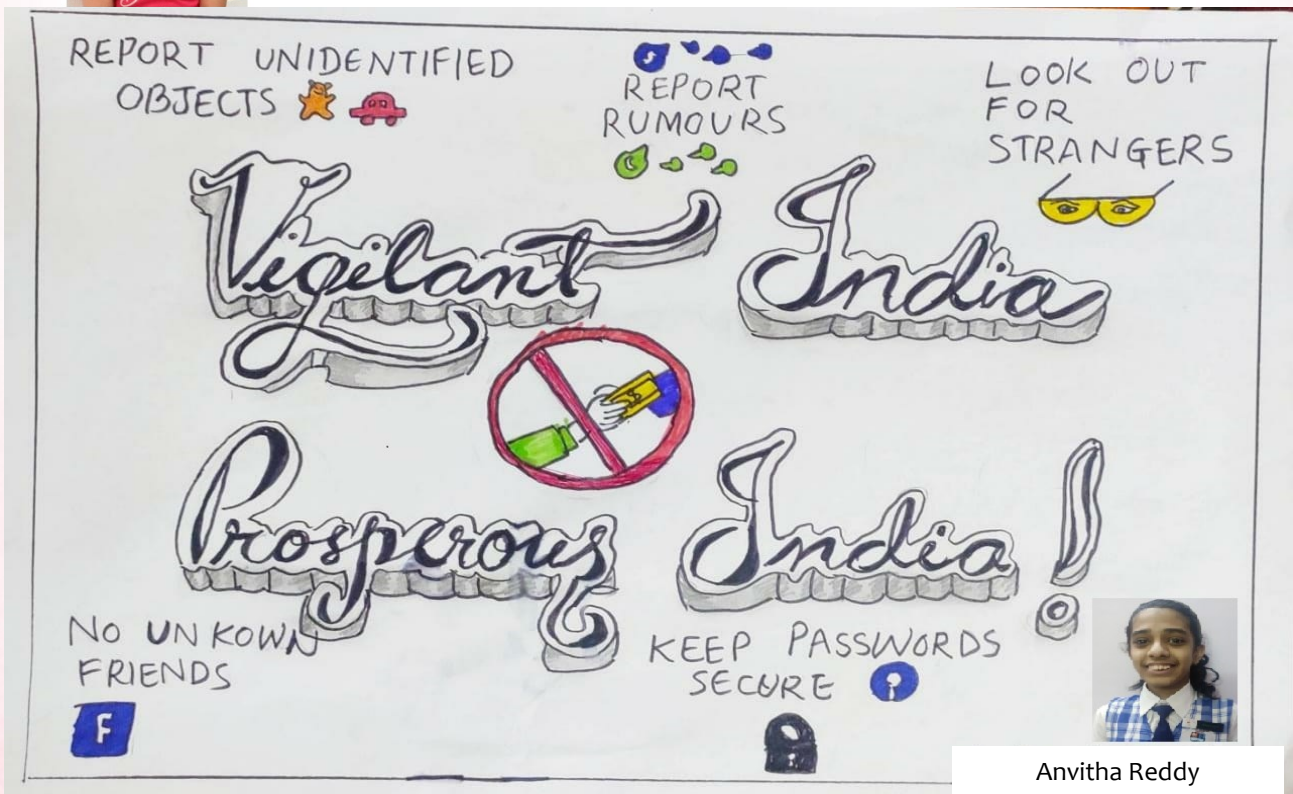 REPORT UNIDENTIFIED
OBJECTS
REPORT
RUMOURS
LOOK OUT
FOR
STRANGERS
Vigilant India
Prosperous India !
NO UNKOWN
FRIENDS
F
KEEP PASSWORDS
SECURE
$
Anvitha Reddy